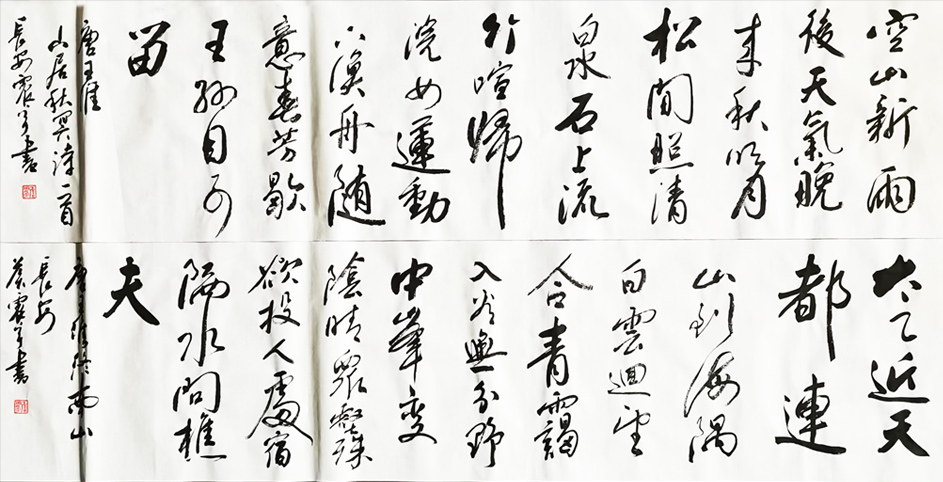 空山新雨
後天氣晚
来秋明月
松間照清
泉石上流
竹喧歸
浣女蓮動
下漁舟随
意春芳歇
王孫自可
留
唐王維
山居秋冥诗一首
長安 書
太乙近天
都連
山到海隅
白雲迴望
合青靄
入看無分野
中峯变
陰晴衆壑殊
欲投人處宿
隔水問樵
夫
唐王維终南山
長安
書